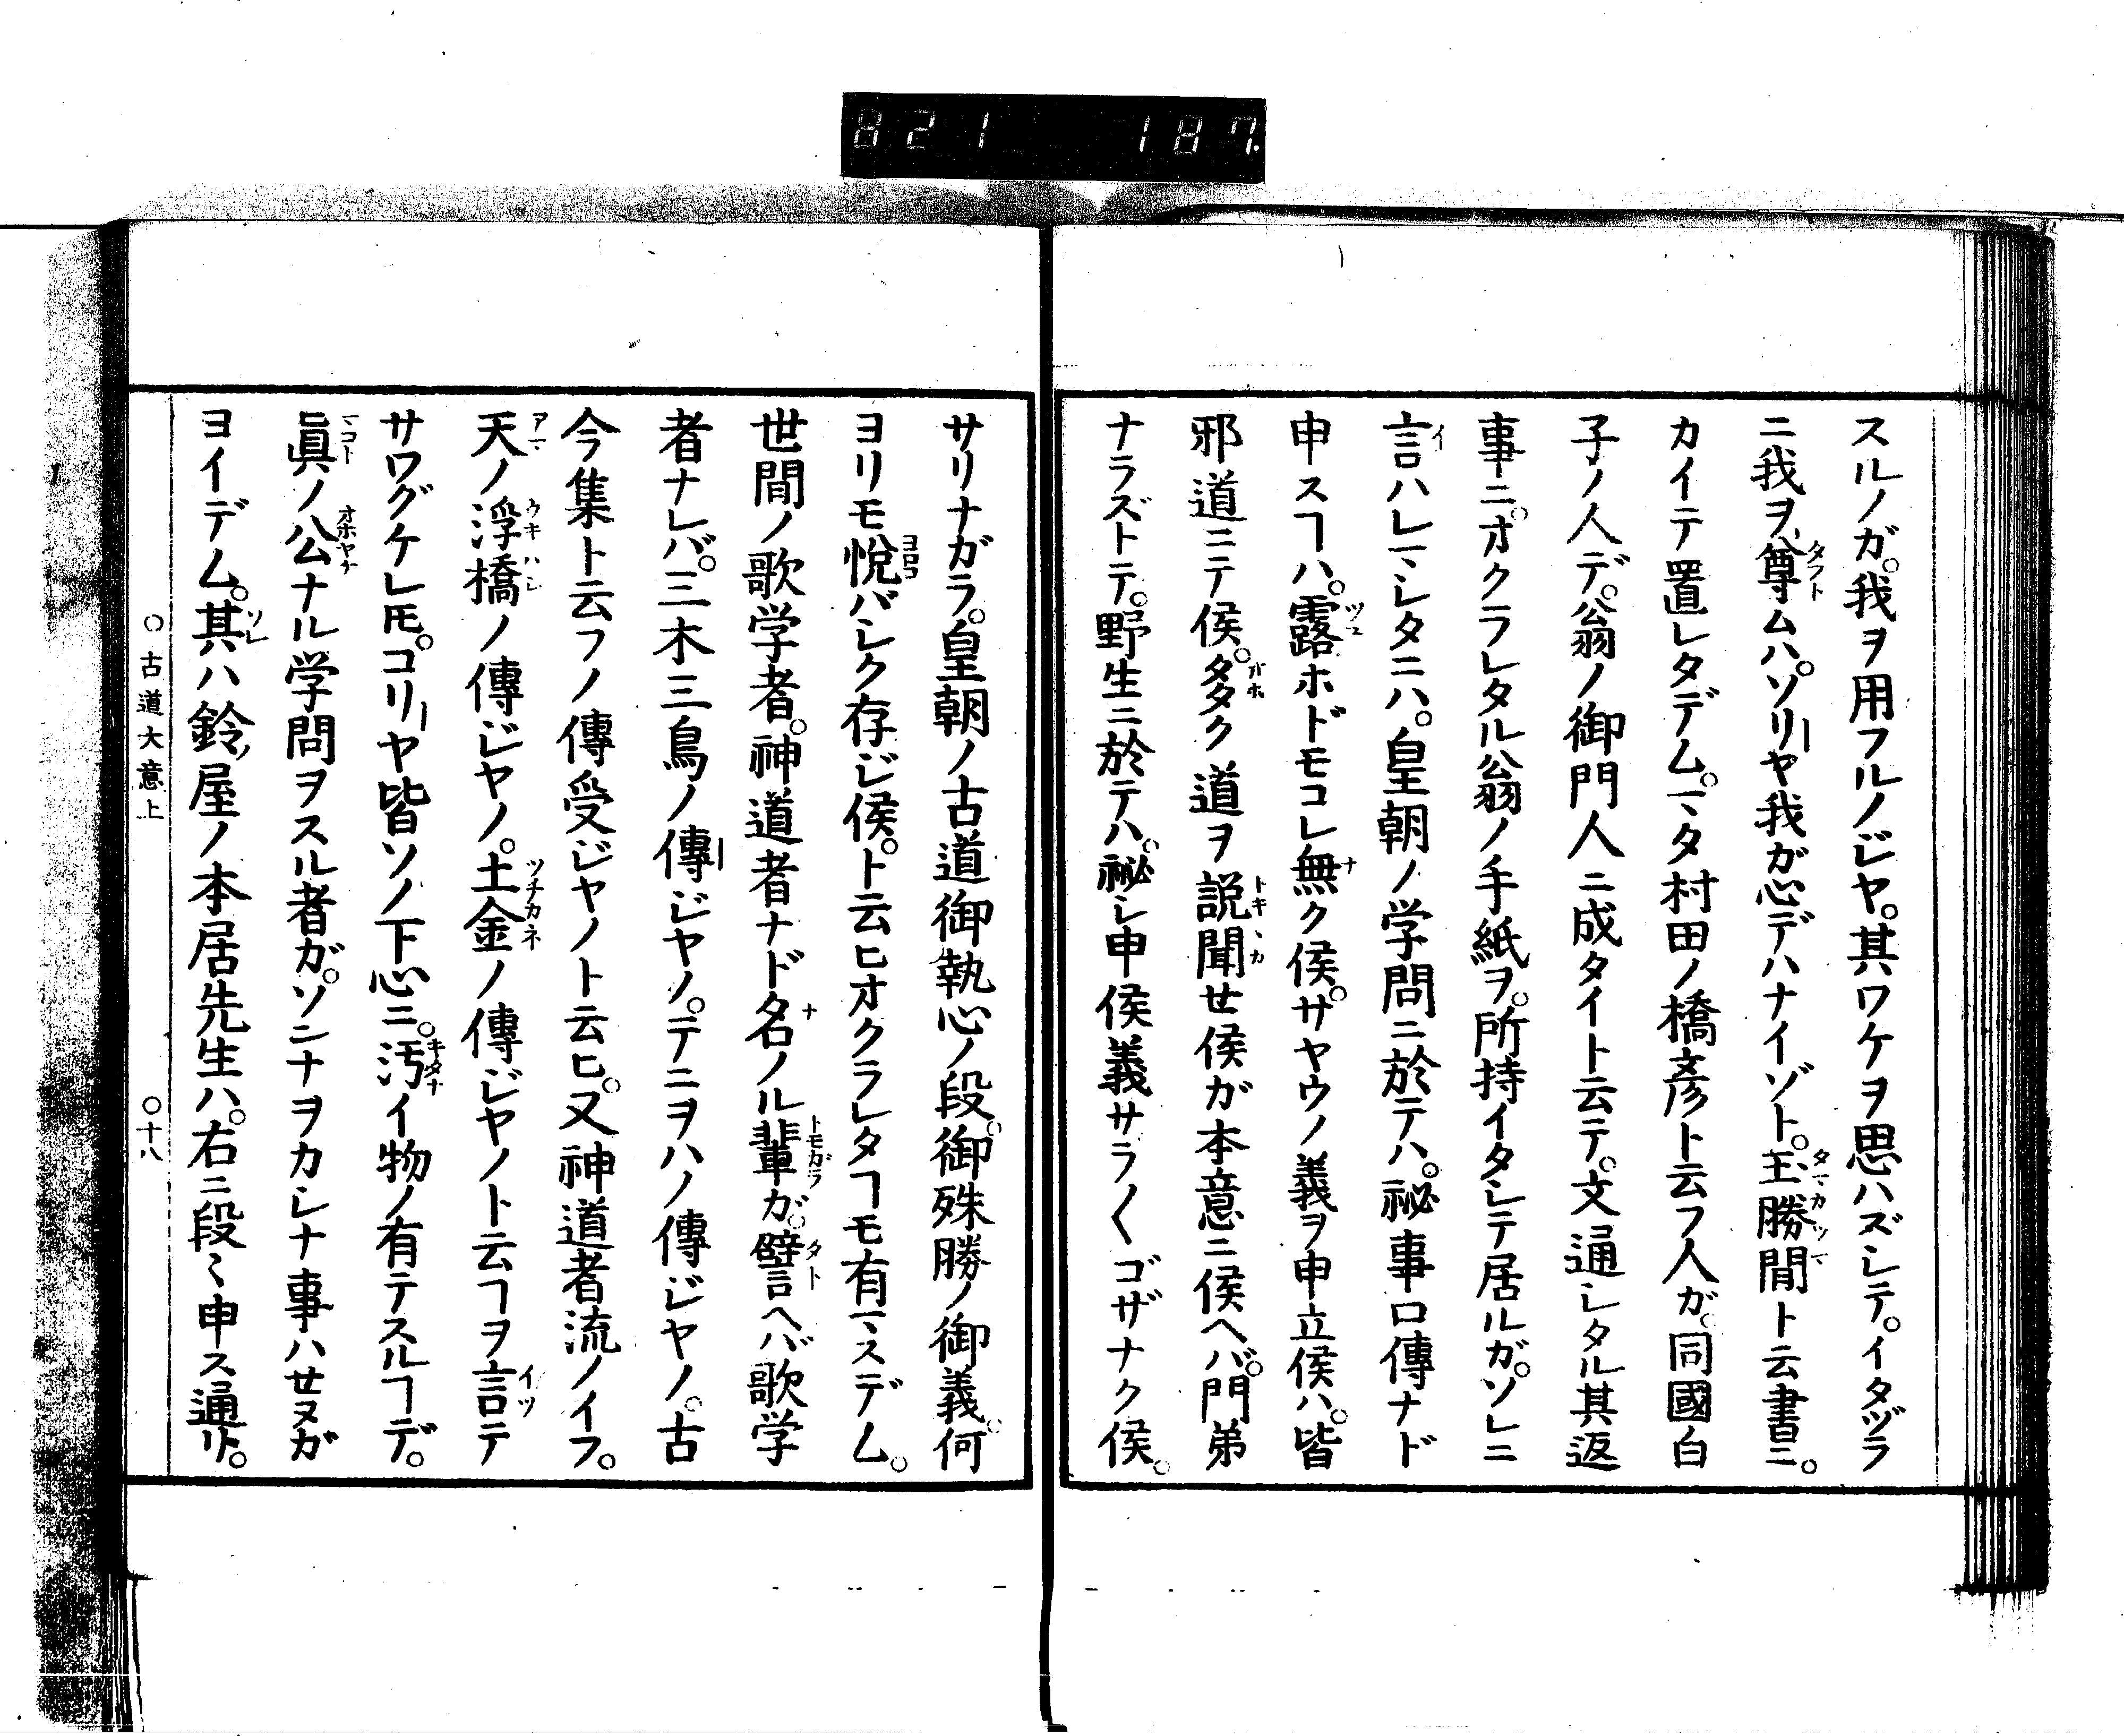 821 187.
スルノガ。我ヲ用フルノジヤ。其ワケヲ思ハズシテ。イタヅラ
ニ我ヲ尊ムハ。ソリヤ我ガ心デハナイゾト。玉勝間ト云書ニ。
カイテ置レタデム。マタ村田ノ橋彦ト云フ人ガ。同國白
子ノ人デ。翁ノ御門人ニ成タイト云テ。文通シタル其返
事ニ。オクラレタル翁ノ手紙ヲ。所持イタシテ居ルガ。ソレニ
言ハレマシタニハ。皇朝ノ学問ニ於テハ。祕事口傳ナド
申スヿハ。露ホドモコレ無ク侯。サヤウノ義ヲ申立侯ハ。皆
邪道ニテ侯。多ク道ヲ説聞せ侯ガ本意ニ侯ヘバ。門弟
ナラズトテ。野生ニ於テハ。祕シ申侯義サラ〳〵ゴザナク侯。
サリナガラ。皇朝ノ古道御執心ノ段。御殊勝ノ御義。何
ヨリモ悦バシク存ジ侯。ト云ヒオクラレタヿモ有マスデム。
世間ノ歌学者。神道者ナド名ノル輩ガ。譬ヘバ歌学
者ナレバ。三木三鳥ノ傳ジヤノ。テニヲハノ傳ジヤノ。古
今集ト云フノ傳受ジヤノト云ヒ。又神道者流ノイフ。
天ノ浮橋ノ傳ジヤノ。土金ノ傳ジヤノト云ヿヲ言テ
サワグケレ𪜈。コリヤ皆ソノ下心ニ。汚イ物ノ有テスルヿデ。
眞ノ公ナル学問ヲスル者ガ。ソンナヲカシナ事ハせヌガ
ヨイデム。其ハ鈴ノ屋ノ本居先生ハ。右ニ段〻申ス通リ。
○古道大意上 ○十八